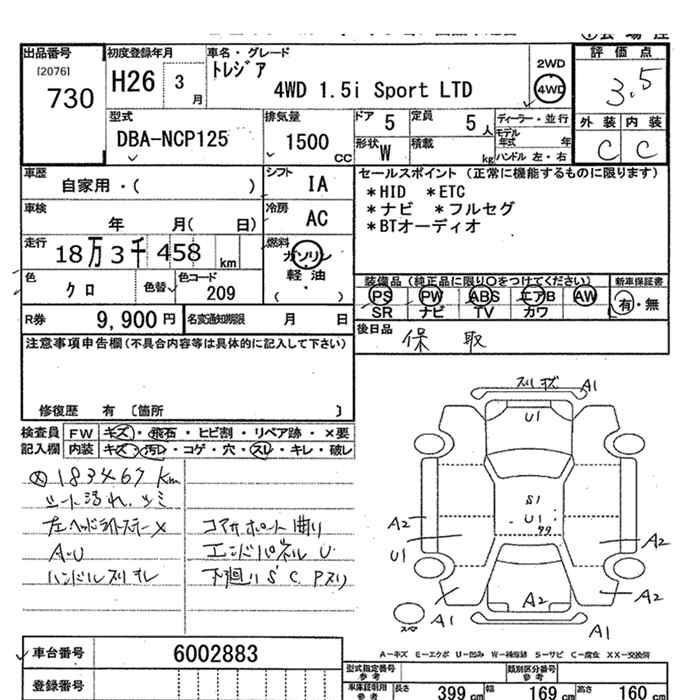 出品番号
[2076]
730
初度登録年月
H26 3 月
車名・グレード
トレジア
4WD 1.5i Sport LTD
2WD
4WD
評価点
3.5
外装 内装
C C
型式
DBA-NCP125
排気量
1500 CC
ドア 5
定員 5 人
形状 W
積載 kg
ディーラー・並行
モデル年式 年
ハンドル 左・右
車歴
自家用・( )
シフト
IA
車検
年 月( 日)
冷房
AC
走行
18万3千458 km
燃料
ガソリン
軽油
( ・ )
色
クロ
色替
色コード
209
R券 9,900円
名変通知期限 月 日
セールスポイント (正常に機能するものに限ります)
*HID *ETC
*ナビ *フルセグ
*BTオーディオ
装備品 (純正品に限り○をつけてください)
PS PW ABS エアB AW
SR ナビ TV カワ
新車保証書
有・無
後日品
保 取
注意事項申告欄(不具合内容等は具体的に記入して下さい)
修復歴 有 〔箇所 〕
検査員記入欄
FW キズ・飛石・ヒビ割・リペア跡・×要
内装 キズ・汚レ・コゲ・穴・スレ・キレ・破レ
183467 Km
シート汚れ、シミ
A-U
ハンドルスリキレ
コアサポート曲り
エンドパネル U
下廻り S C Pスリ
スリ キズ A1
U1
S1
U1
A2
U1
A2
A2
A2
A1
A1
スペア
A-キズ E-エクボ U-凹み W-補修跡 S-サビ C-腐食 XX-交換済
車台番号
6002883
登録番号
型式指定番号 参考
類別区分番号 参考
車庫証明用 参考
長さ 399 cm
幅 169 cm
高さ 160 cm